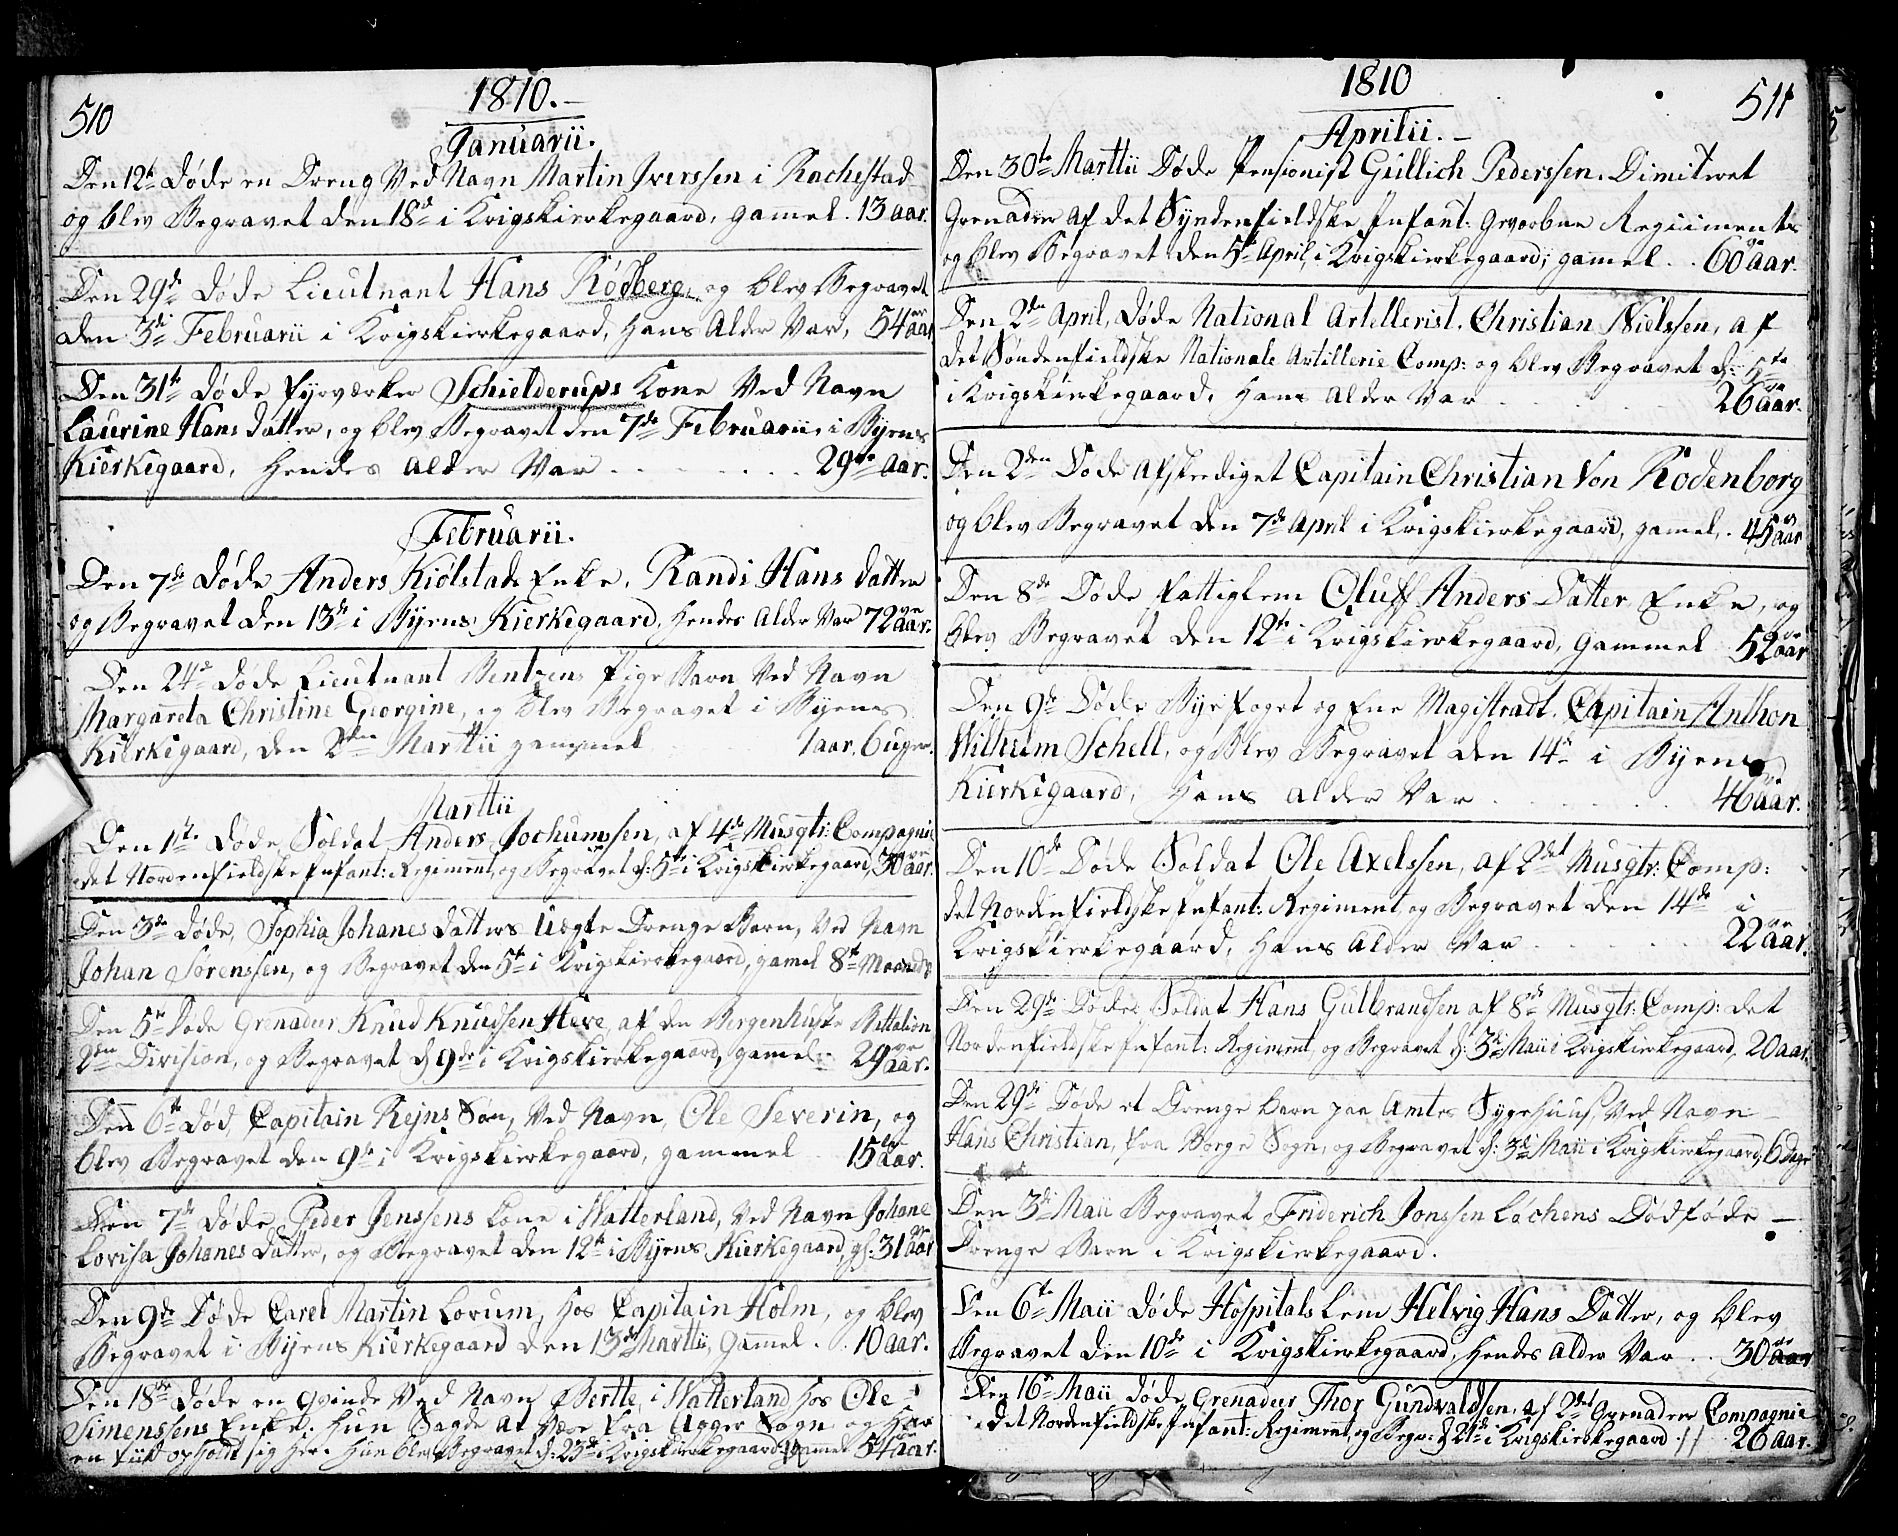 510
1810.
Januarii.
Den 12te Døde en Dreng Ved Navn Martin Iverssen i Rachestad
og blev Begravet den 18de i Krigskierkegaard, gammel. 13 aar.
Den 29de Døde Lieutnant Hans Rødberg, og blev Begravet
den 3die Februarii i Krigskierkegaard, Hans Alder Var, 54 aar
Den 31te Døde Fyrværker Schielderups Kone Ved Navn
Laurine Hans datter, og blev Begravet den 7de Februarii, i Byens
Kierkegaard, Hendes Alder Var 29 aar.
Februarii.
Den 7de Døde Anders Kiølstads Enke, Randi Hans datter
og Begravet den 13de i Byens Kierkegaard, Hendes Alder Var 72 aar.
Den 24de Døde Lieutnant Bentzens Pige Barn Ved Navn
Margareta Christine Georgine, og blev Begravet i Byens
Kierkegaard, den 2den Marttii gammel 1 aar, 6 uger.
Marttii
Den 1ste Døde, Soldat Anders Jochumssen, af 4de Musqtr: Compagnie
det Nordenfieldske Infant: Regiment, og Begravet d: 5te i Krigskierkegaard, 30 aar.
Den 3de Døde, Sophia Johanes datters Uægte Drenge Barn, Ved Navn
Johan Sørenssen, og Begravet den 5te i Krigskierkegaard, gamel 8te Maaneder
Den 5te Døde Grenadeer Knud Knudsen Heve, af den Bergenhuske Battalion
2den Division, og Begravet d 9de i Krigskierkegaard, gamel 29 aar.
Den 6te Død, Capitain Rejns Søn, Ved Navn, Ole Severin, og
blev Begravet den 9de i Krigskierkegaard, gammel 15 aar.
Den 7de Døde, Peder Jenssens Kone i Watterland, Ved Navn Johane
Lovisa Johanes datter, og Begravet den 12te i Byens Kierkegaard, gl: 31 aar
Den 9de Døde Carel Martin Lorum, hos Capitain Holm, og blev
Begravet i Byens Kierkegaard den 13de Marttii, Gammel. 10 aar.
Den 18de Døde en Qvinde Ved Navn Bertte, i Watterland hos Ole
Simenssens Enke. Hun Sagde at Være fra Agger Sogn og Har
en tiid opholdt sig her. Hun blev Begravet d: 23de i Krigskierkegaard: gamel 54 aar.
1810
511
Aprilii.
Den 30te Marttii Døde Pensionist Gullich Pederssen. Dimiteret
Grenadeer af det Syndenfieldske Infant: Gevorbne Regiments
og blev Begravet den 5te April, i Krigskierkegaard; gamel 60 aar.
Den 2den April, Døde National Artellerist. Christian Nielssen, af
det Søndenfieldske Nationale Artillerie Comp: og blev Begravet d: 5te
i Krigskierkegaard, Hans Alder Var 26 aar.
Den 2den Døde Afskediget Capitain Christian Von Rodenborg
og blev Begravet den 7de April i Krigskierkegaard, gamel, 45 aar
Den 8de Døde Fattiglem Oluff Anders Datter, Enke, og
blev Begravet den 12te i Krigskierkegaard, Gammel 52 aar
Den 9de Døde Byefoget og Ene Magistradt. Capitain Anthon
Wilhelm Schell, og Blev Begravet den 14de i Byens
Kierkegaard, Hans Alder Var 46 aar.
Den 10de Døde Soldat Ole Axelssen, af 2det Musqtr: Comp:
det Nordenfieldske Infant: Regiment, og Begravet den 14de i
Krigskierkegaard, Hans Alder Var 22 aar.
Den 29de Døde Soldat Hans Gulbrandsen af 8de Musqtr: Comp: det
Nordenfieldske Infant: Regiment, og Begravet d: 3die Maii i Krigskierkegaard, 20 aar.
Den 29de Døde et Drenge barn paa Amtes Sygehuus, Ved Navn
Hans Christian, fra Borge Sogn, og Begravet d: 3die Maii i Krigskierkegaard, 6 dage
Den 3die Maii Begravet Friderich Jonssen Løchens Dødføde
Drenge Barn i Krigskierkegaard.
Den 6te Maii Døde Hospitals Lem Helvig Hans Datter, og blev
Begravet den 10de i Krigskierkegaard, Hendes Alder Var 30 aar
Den 16te Maii Døde, Grenadeer Thor Gundvaldsen, af 2det Grenadeer Compagnie
det Nordenfieldske Infant: Regiment, og Begr: d 21de i Krigskierkegaard 26 aar.